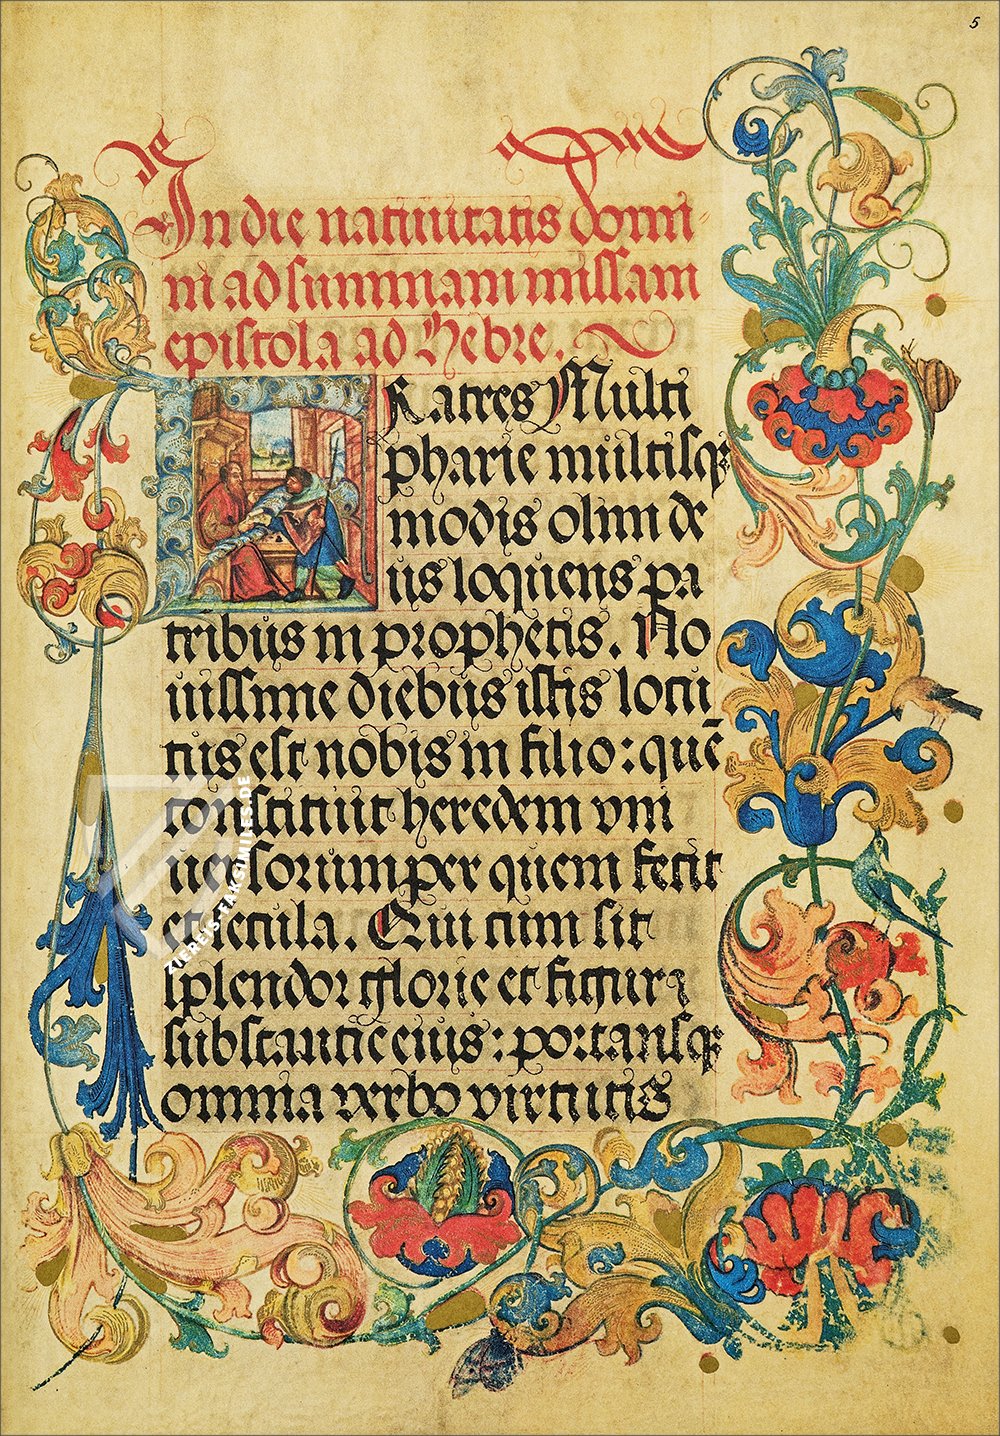 5
In die nativitatis domi-
ni ad summam missam
epistola ad Hebre.
Fratres Multi
pharie multisq3
modis olim de
us loquens pa
tribus in prophetis. No
uissime diebus istis locu
tus est nobis in filio: quē
constituit heredem vni
uersorum per quem fecit
et secula. Qui cum sit
splendor glorie et figura
substantie eius: portansq3
omnia verbo virtutis
ZIEREIS-FAKSIMILES.DE